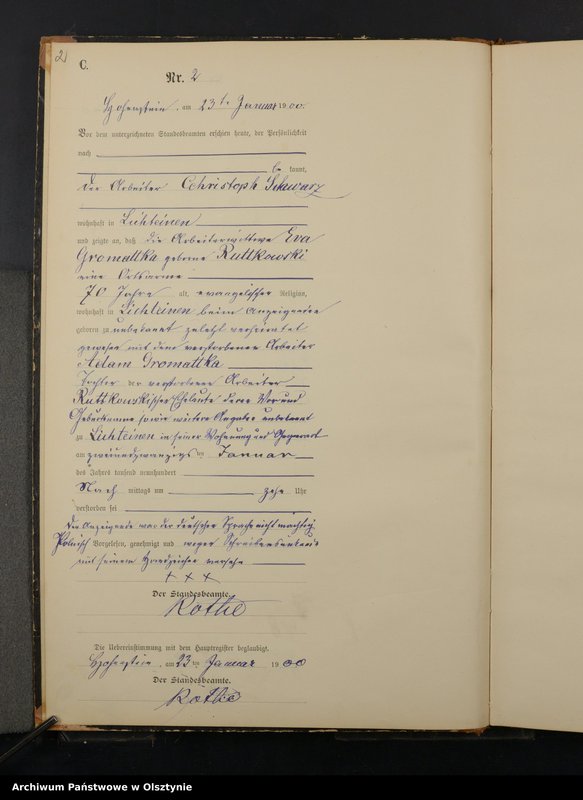 2
C.
Nr. 2
Hohenstein, am 23ten Januar 1900.
Vor dem unterzeichneten Standesbeamten erschien heute, der Persönlichkeit
nach
be kannt,
der Arbeiter Christoph Schwarz
wohnhaft in Lichteinen
und zeigte an, daß die Arbeiterwittwe Eva
Gromattka geborne Ruttkowski
eine Ortsarme
70 Jahre alt, evangelischer Religion,
wohnhaft in Lichteinen beim Anzeigenden
geboren zu unbekannt zuletzt verheirathet
gewesen mit dem verstorbenen Arbeiter
Adam Gromattka
Tochter der verstorbenen Arbeiter
Ruttkowskischen Eheleute deren Vor und
Geburtsname sowie weitere Angaben unbekannt
zu Lichteinen in seiner Wohnung und Gegenwart
am zweiundzwanzigsten Januar
des Jahres tausend neunhundert
Nach mittags um zehn Uhr
verstorben sei
Der Anzeigende war der deutschen Sprache nicht mächtig.
Polnisch Vorgelesen, genehmigt und wegen Schreibensunkunde
mit seinem Handzeichen versehen
+ + +
Der Standesbeamte.
Rothe
Die Uebereinstimmung mit dem Hauptregister beglaubigt.
Hohenstein, am 23ten Januar 1900
Der Standesbeamte.
Rothe
Archiwum Państwowe w Olsztynie